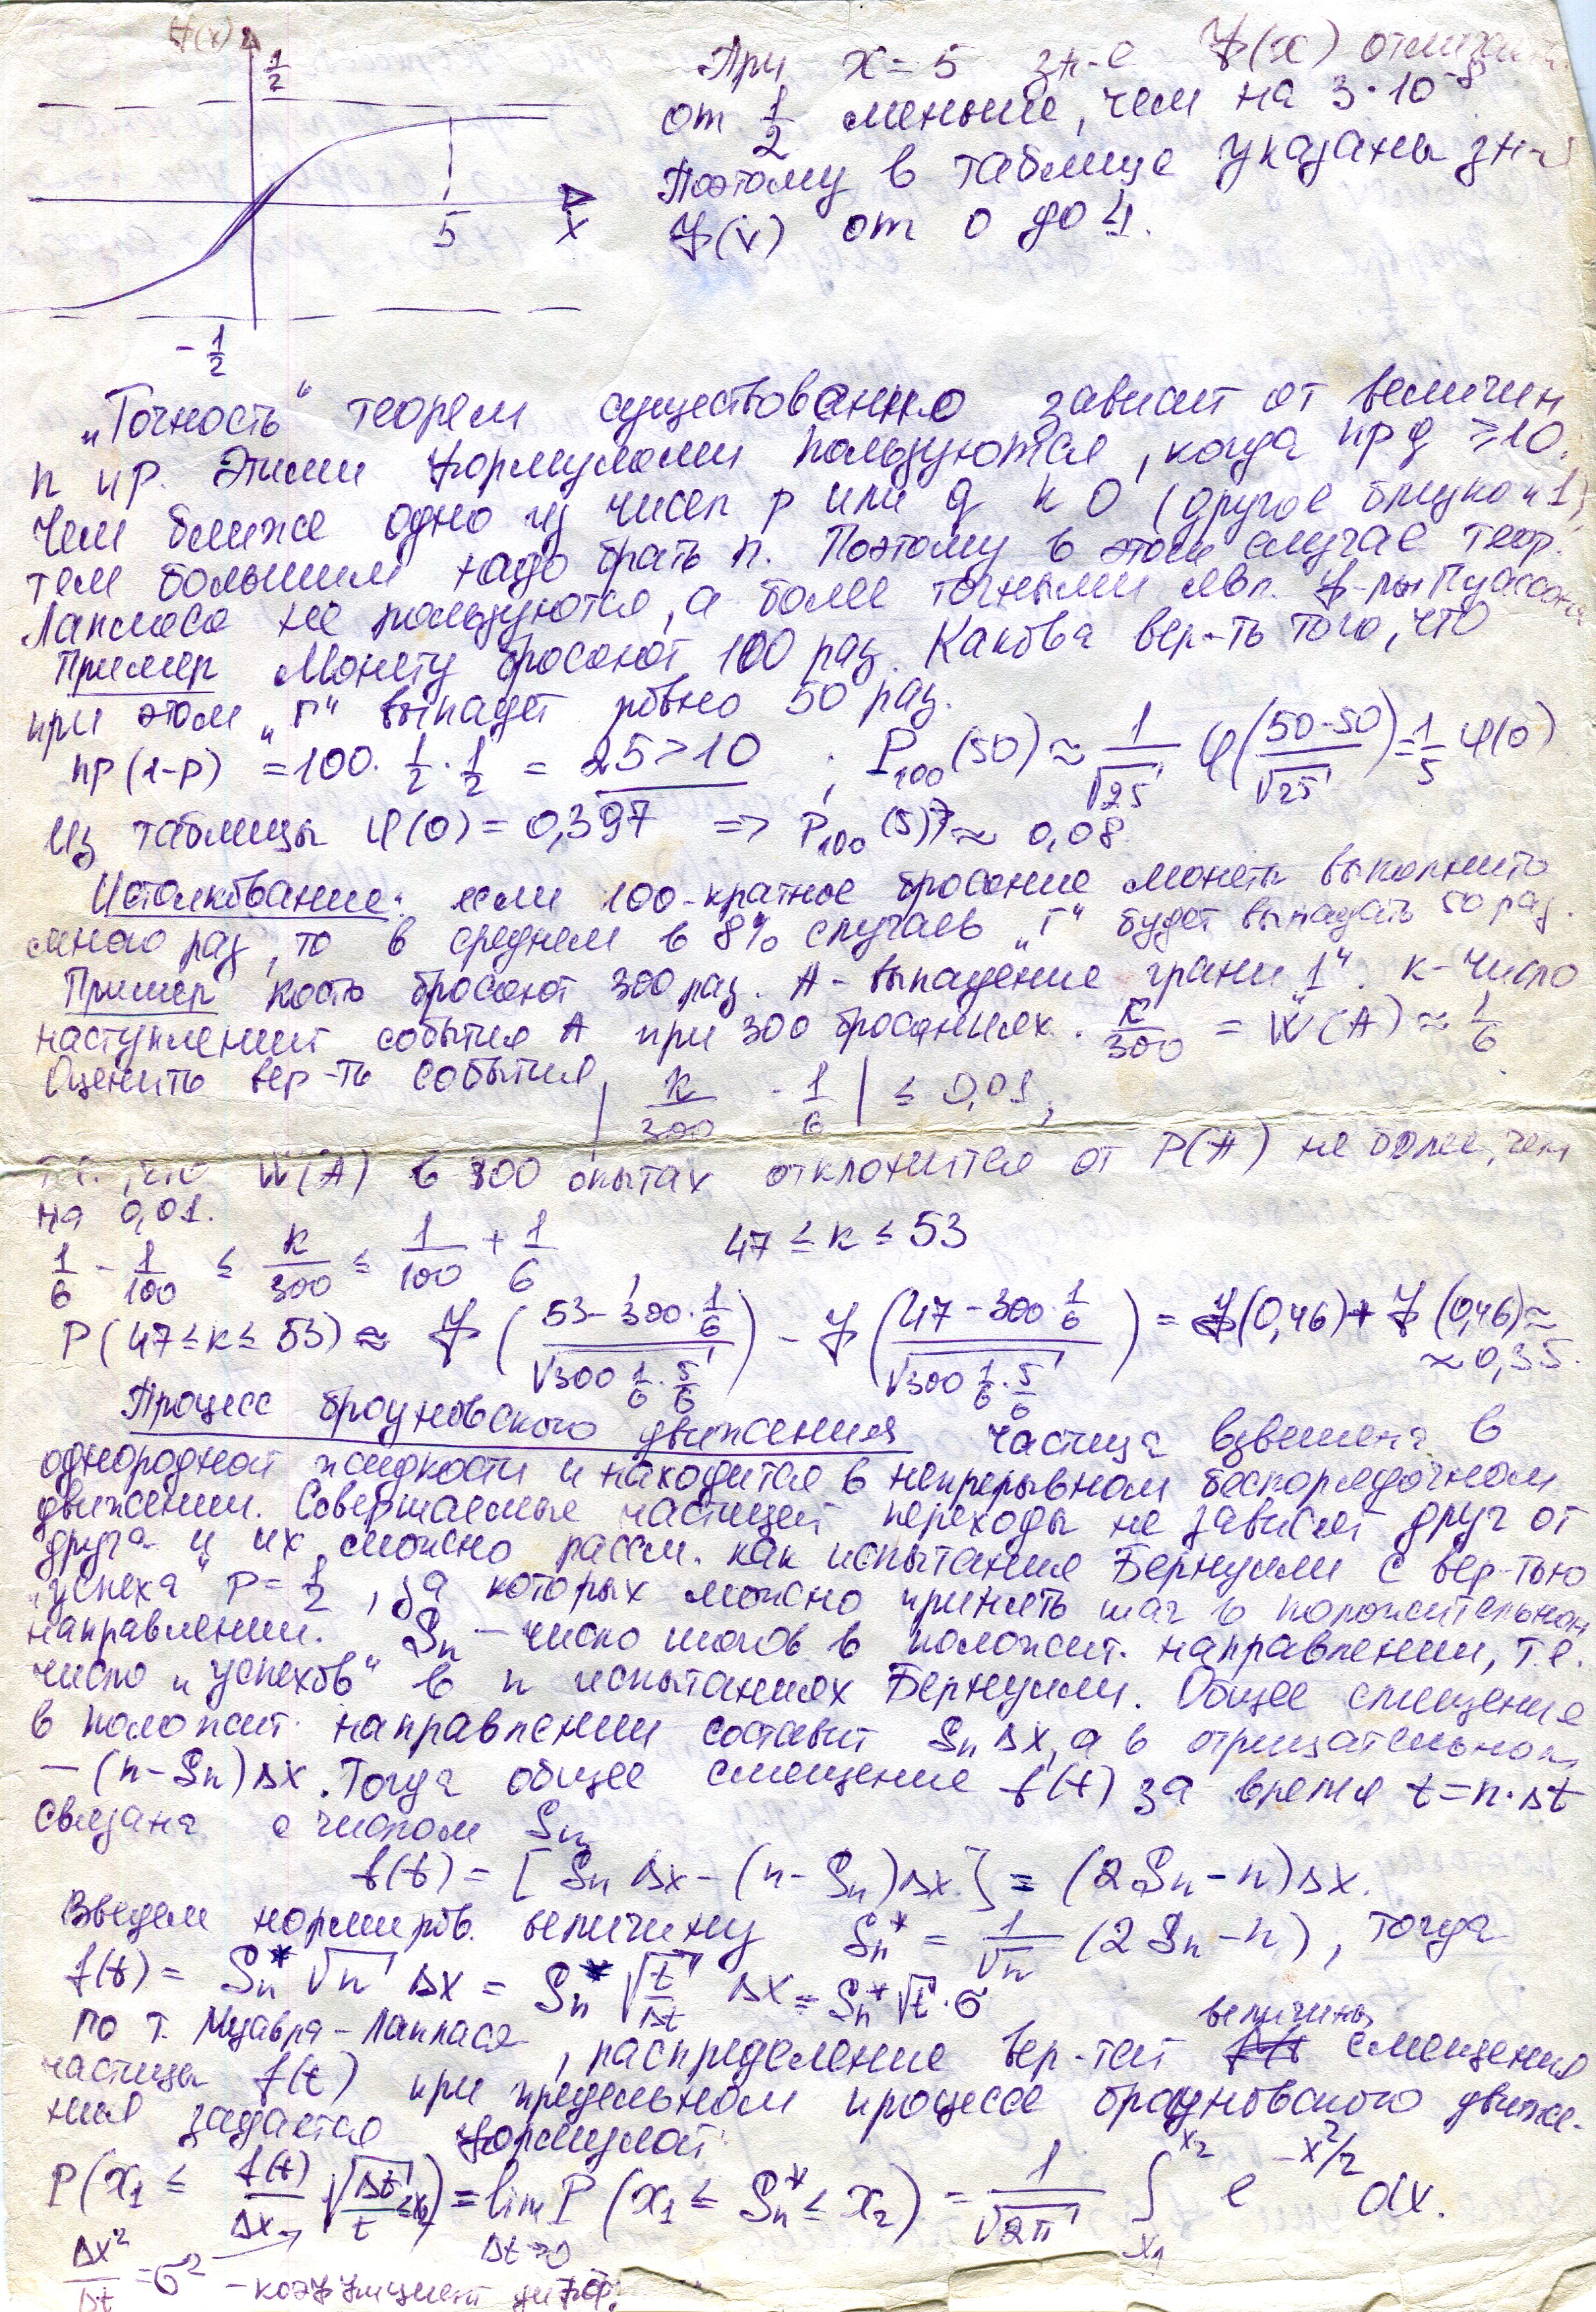 Ф(x)
1/2
5
x
- 1/2
При x = 5 зн-е Ф(x) отличается
от 1/2 меньше, чем на 3·10⁻⁸
Поэтому в таблице указаны зн-я
Ф(x) от 0 до 4.
„Точность“ теорем существенно зависит от величин
n и p. Этими формулами пользуются, когда npq ≥ 10.
Чем ближе одно из чисел p или q к 0 (другое близко к 1),
тем большим надо брать n. Поэтому в этом случае теор.
Лапласа не пользуются, а более точными явл. ф-лы Пуассона
Пример Монету бросают 100 раз. Какова вер-ть того, что
при этом „Г“ выпадет ровно 50 раз.
np(1-p) = 100 · 1/2 · 1/2 = 25 > 10 ; P₁₀₀(50) ≈ 1/√25 φ((50-50)/√25) = 1/5 φ(0)
Из таблицы φ(0) = 0,397 => P₁₀₀(5)7 ≈ 0,08
Истолкование: если 100-кратное бросание монеты выполнить
много раз, то в среднем в 8% случаев „Г“ будет выпадать 50 раз.
Пример Кость бросают 300 раз. A - выпадение грани „1“. k - число
наступлений события A при 300 бросаниях. k/300 = W(A) ≈ 1/6
Оценить вер-ть события | k/300 - 1/6 | ≤ 0,01,
т.е., что W(A) в 300 опытах отклонится от P(A) не более, чем
на 0,01.
1/6 - 1/100 ≤ k/300 ≤ 1/100 + 1/6 , 47 ≤ k ≤ 53
P(47 ≤ k ≤ 53) ≈ Ф((53 - 300·1/6)/√(300 1/6 · 5/6)) - Ф((47 - 300·1/6)/√(300 1/6 · 5/6)) = Ф(0,46) + Ф(0,46) ≈
≈ 0,35.
Процесс броуновского движения Частица взвешена в
однородной жидкости и находится в непрерывном беспорядочном
движении. Совершаемые частицей переходы не зависят друг от
друга и их можно рассм. как испытания Бернулли с вер-тью
„успеха“ P = 1/2, за которых можно принять шаг в положительном
направлении. Sₙ - число шагов в положит. направлении, т.е.
число „успехов“ в n испытаниях Бернулли. Общее смещение
в положит. направлении составит SₙΔx, а в отрицательном
— (n-Sₙ)Δx. Тогда общее смещение f(t) за время t = n·Δt
связана с числом Sₙ
f(t) = [SₙΔx - (n-Sₙ)Δx] = (2Sₙ - n)Δx.
Введем нормиров. величину Sₙ* = 1/√n (2Sₙ - n), тогда
f(t) = Sₙ* √n Δx = Sₙ* √(t/Δt) Δx = Sₙ* √t · σ
По т. Муавра-Лапласа, распределение вер-тей величины смещения
частицы f(t) при предельном процессе броуновского движе-
ния задается формулой
P(x₁ ≤ f(t)/Δx √(Δt/t) ≤ x₂) = lim P(x₁ ≤ Sₙ* ≤ x₂) = 1/√2π ∫ e^(-x²/2) dx.
x₂
Δt→0
x₁
Δx²/Δt = σ² - коэффициент диф.